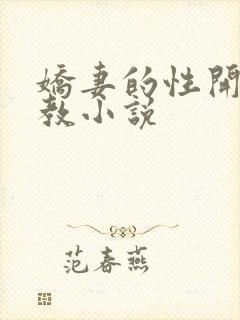 嬌妻的性開
教小説
范春燕